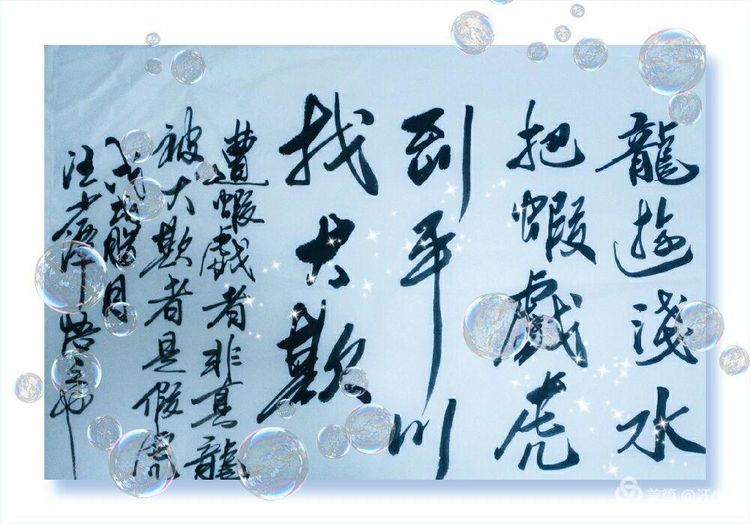 龍遊淺水
把蝦戲虎
到平川
找犬欺
遭蝦戲者非真龍
被犬欺者是假虎
戊戌腊月
汪少
美篇 @汪